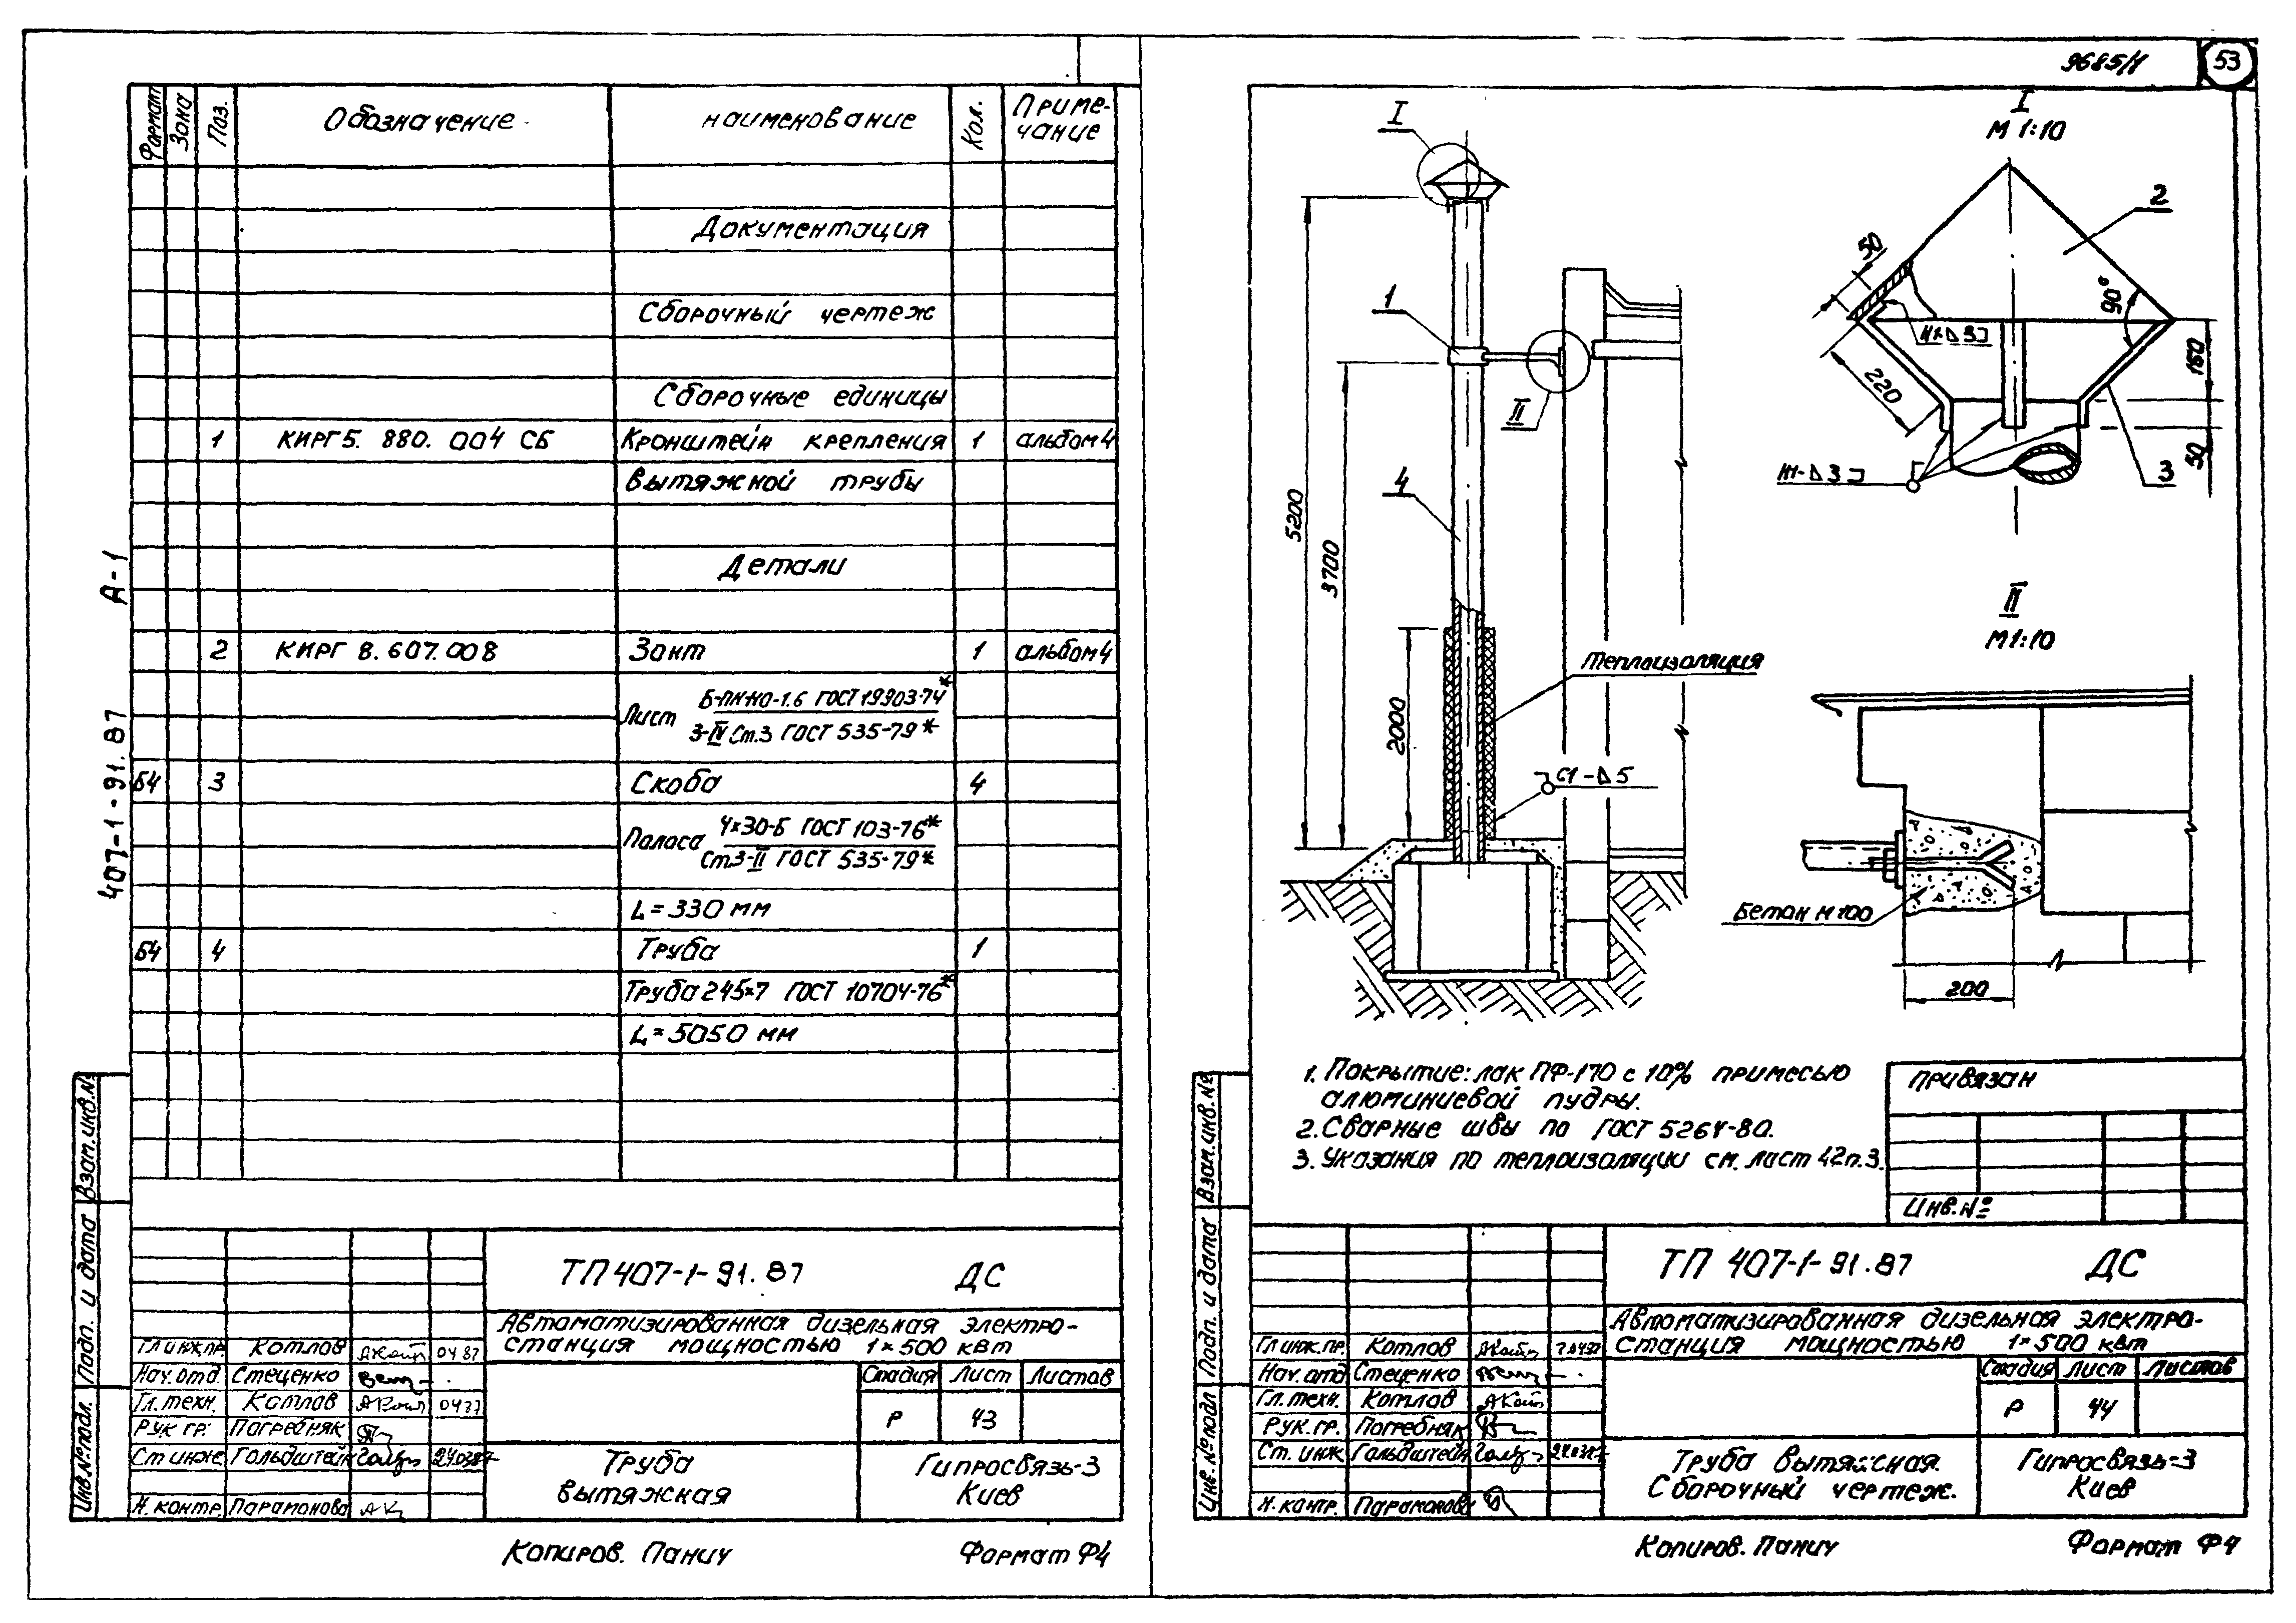 Формат
Зона
Поз.
Обозначение
наименование
Кол.
Приме-
чание
Документация
Сборочный чертеж
Сборочные единицы
1 КИРГ5. 880. 004 СБ Кронштейн крепления 1 альбом 4
вытяжной трубы
Детали
2 КИРГ 8.607.008 Зонт 1 альбом 4
Лист Б-ПН-НО-1.6 ГОСТ 19903-74*
3-IV Ст.3 ГОСТ 535-79*
Б4 3 Скоба 4
Полоса 4×30-Б ГОСТ 103-76*
Ст3-II ГОСТ 535-79*
L=330 мм
Б4 4 Труба 1
Труба 245×7 ГОСТ 10704-76*
L=5050 мм
407-1-91.87 А-1
Взам.инв.№
Подп. и дата
Инв.№подл.
ТП 407-1-91.87 ДС
Автоматизированная дизельная электро-
станция мощностью 1×500 квт
Гл инж.пр. Котлов 04 87
Нач.отд. Стеценко
Гл.техн. Котлов
Рук гр. Погребняк
Ст инж Гольдштейн
Н.контр. Парамонова
Стадия Лист Листов
Р 43
Труба
вытяжная
Гипросвязь-3
Киев
Копиров. Панич
Формат Ф4
9685/1
53
I
1
II
4
5200
3700
2000
Теплоизоляция
С1-△5
I
М 1:10
2
50
90°
Н1-△3
220
160
50
Н1-△3
3
II
М1:10
Бетон М100
200
1. Покрытие: лак ПФ-170 с 10% примесью
алюминиевой пудры.
2. Сварные швы по ГОСТ 5264-80.
3. Указания по теплоизоляции см. лист 42п.3.
Привязан
Инв.№
Взам.инв.№
Подп. и дата
Инв.№подл
ТП 407-1-91.87 ДС
Автоматизированная дизельная электро-
станция мощностью 1×500 квт
Гл инж.пр. Котлов
Нач.отд Стеценко
Гл.техн. Котлов
Рук.гр. Погребняк
Ст. инж Гольдштейн
Н.контр. Парамонова
Стадия Лист Листов
Р 44
Труба вытяжная.
Сборочный чертеж.
Гипросвязь-3
Киев
Копиров. Панич
Формат Ф4